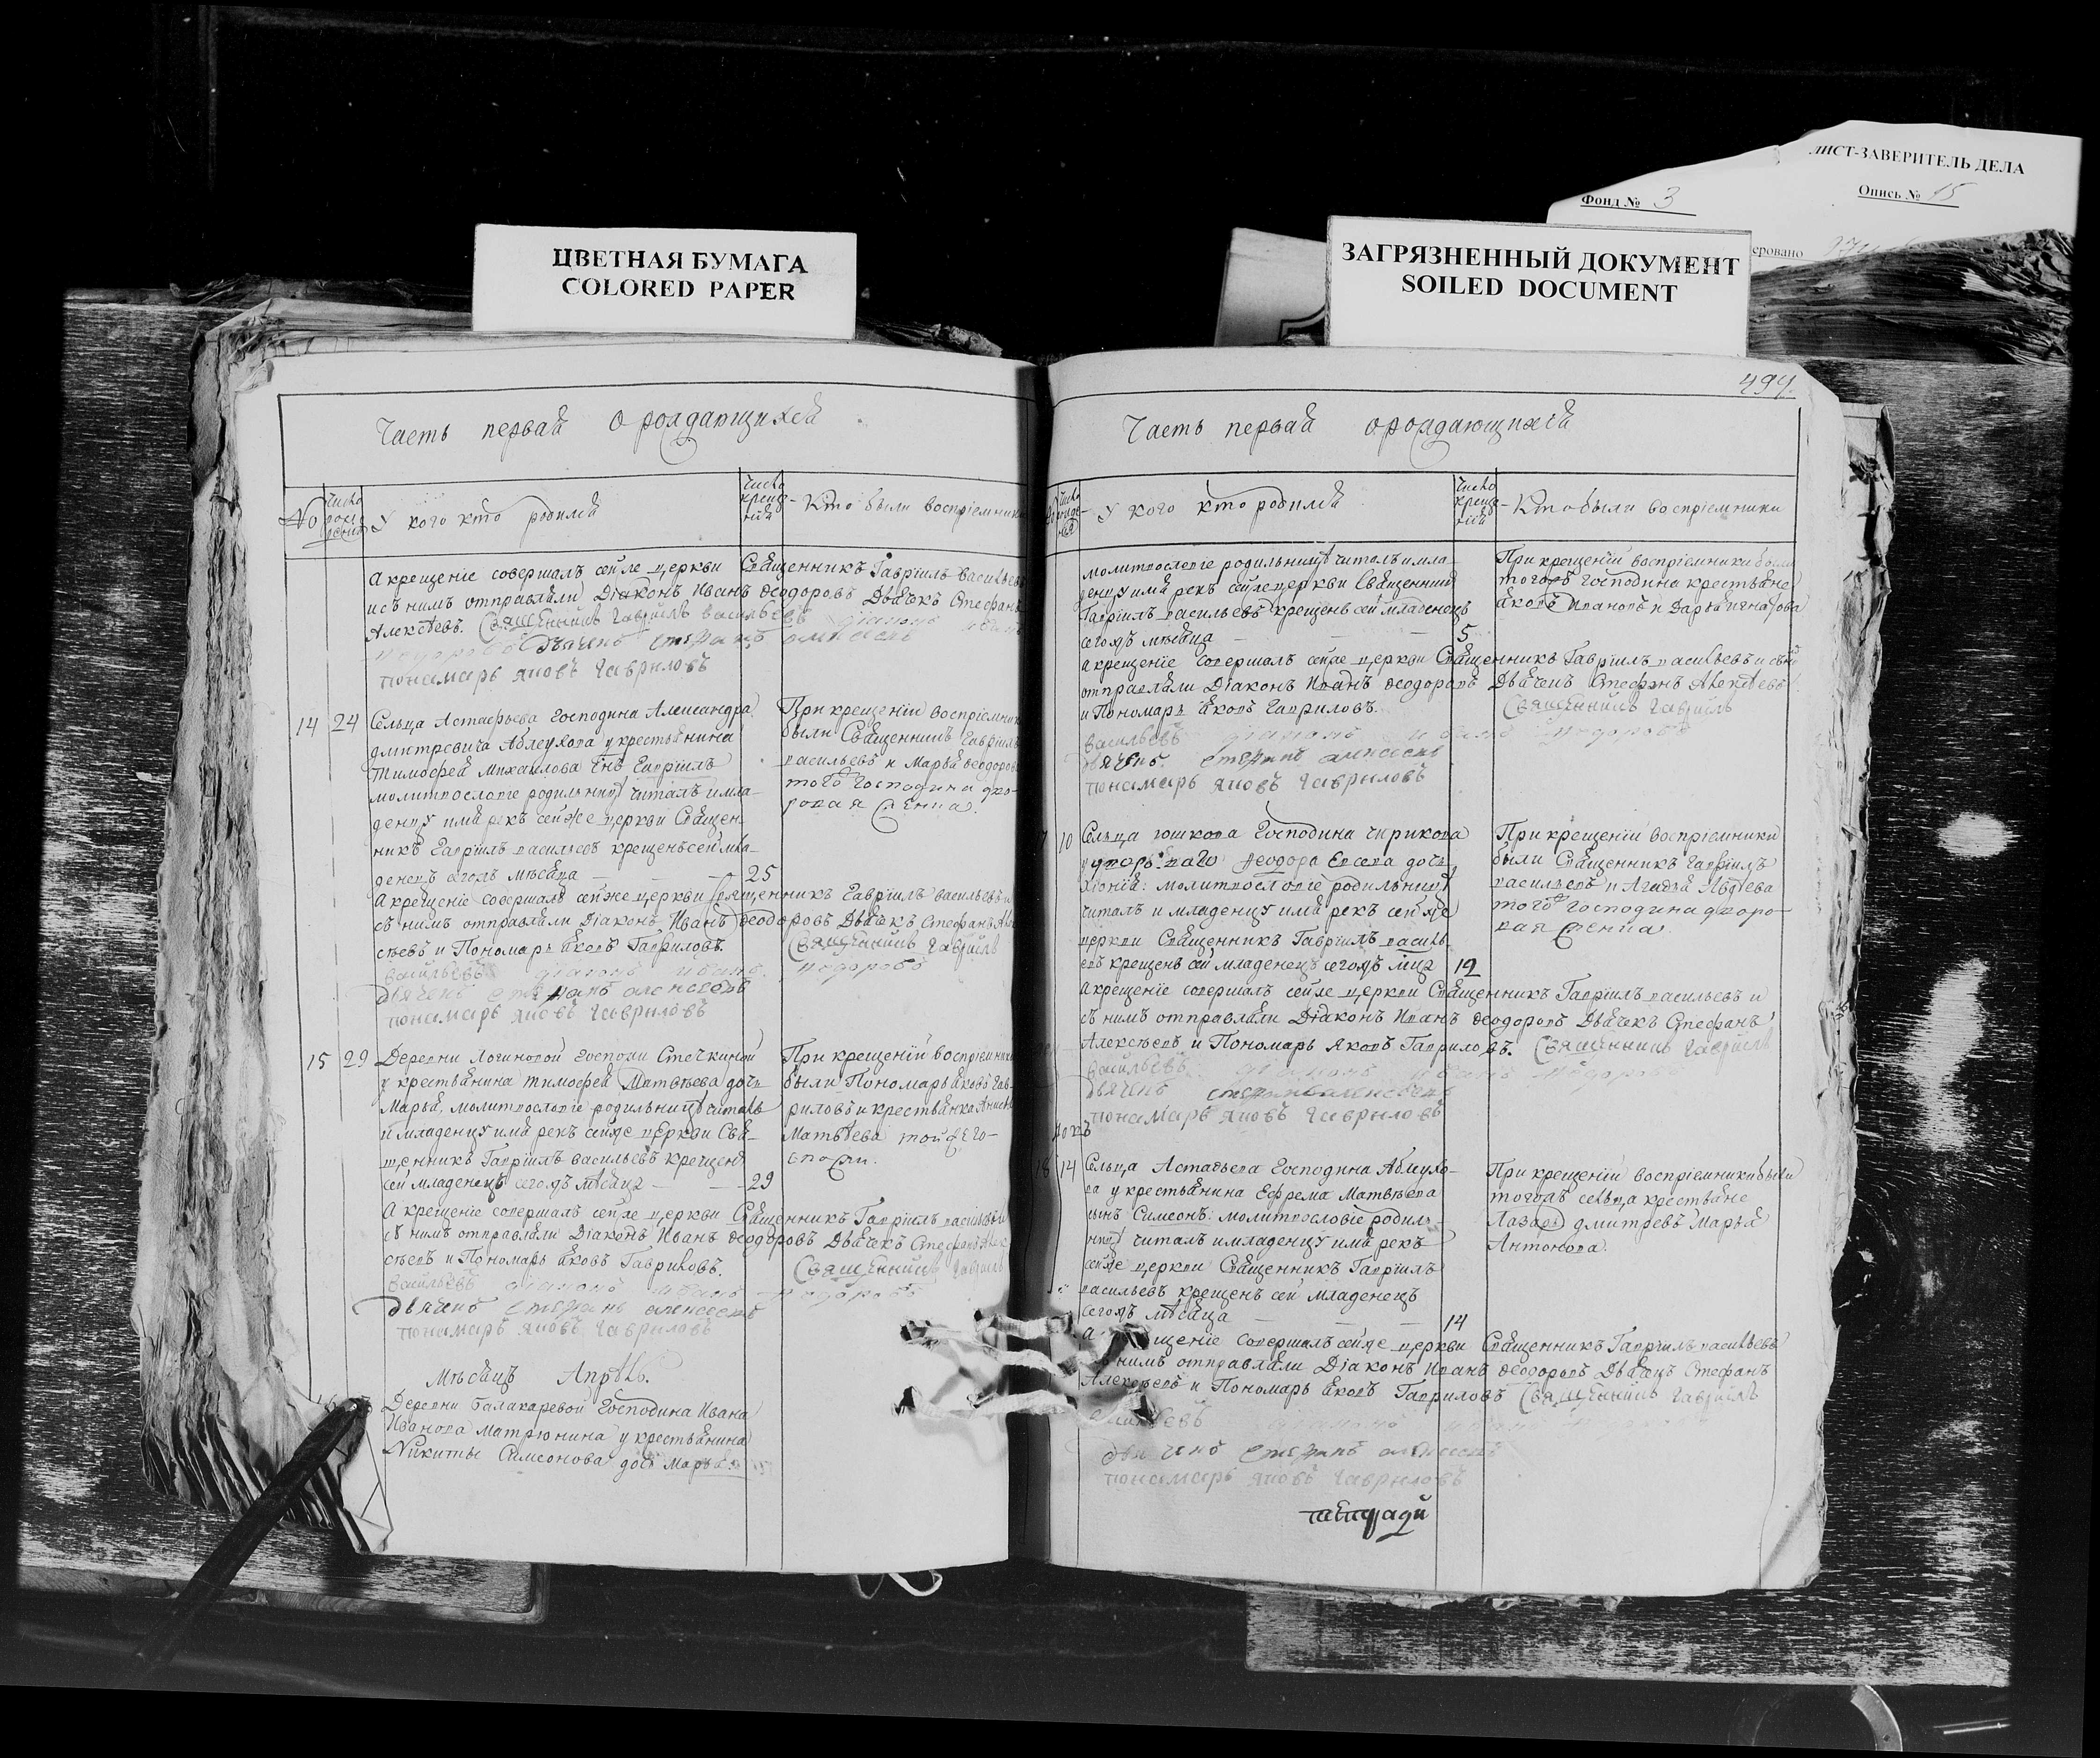 ЛИСТ-ЗАВЕРИТЕЛЬ ДЕЛА
Фонд № 3
Опись № 15
ЦВЕТНАЯ БУМАГА
COLORED PAPER
ЗАГРЯЗНЕННЫЙ ДОКУМЕНТ
SOILED DOCUMENT
Часть первая о рождающихся
№
Число рождения
У кого кто родился
Число крещения
Кто были восприемники
А крещенiе совершалъ сей же церкви Священникъ Гаврiилъ Васильевъ
и съ нимъ отправляли Дiаконъ Иванъ Ѳеодоровъ Дьячекъ Стефанъ
Алексѣевъ. Священникъ Гаврiилъ Васильевъ дiаконъ иванъ
Ѳедоровъ дьячекъ стефанъ алексеевъ
пономарь яковъ гавриловъ
14 24 Сельца Астафьева Господина Александра
Дмитревича Аблеухова у крестьянина
Тимофея Михайлова снъ Гаврiилъ
молитвословiе родильницѣ читалъ и мла-
денцу имя рекъ сей же церкви Священ-
никъ Гаврiилъ Васильевъ крещенъ сей мла-
денецъ сегожъ мѣсяца 25
При крещенiи восприемники
были Священникъ Гаврiилъ
Васильевъ и Марья Ѳеодорова
тогожъ Господина дво-
ровая женка.
А крещенiе совершалъ сей же церкви Священникъ Гаврiилъ Васильевъ и
съ нимъ отправляли Дiаконъ Иванъ Ѳеодоровъ Дьячекъ Стефанъ Алек
сѣевъ и Пономарь Яковъ Гавриловъ. Священникъ Гаврiилъ
Васильевъ дiаконъ иванъ Ѳедоровъ
дьячекъ стефанъ алексеевъ
пономарь яковъ гавриловъ
15 29 Деревни Логиновой Госпожи Стечкиной
у крестьянина Тимофея Матвѣева дочь
Марья, молитвословiе родильницѣ читалъ
и младенцу имя рекъ сей же церкви Свя-
щенникъ Гаврiилъ Васильевъ крещенъ
сей младенецъ сегожъ мѣсяца 29
При крещенiи восприемники
были Пономарь Яковъ Гав-
риловъ и крестьянка Анисья
Матвѣева той же го-
спожи.
А крещенiе совершалъ сей же церкви Священникъ Гаврiилъ Васильевъ и
съ нимъ отправляли Дiаконъ Иванъ Ѳеодоровъ Дьячекъ Стефанъ Алек
сѣевъ и Пономарь Яковъ Гавриловъ. Священникъ Гаврiилъ
Васильевъ дiаконъ иванъ Ѳедоровъ
дьячекъ стефанъ алексеевъ
пономарь яковъ гавриловъ
Мѣсяцъ Апрѣль.
16 Деревни Балакаревой Господина Ивана
Иванова Матрюнина у крестьянина
Никиты Симеонова дочь Марья
494.
Часть первая о рождающихся
Число рожде-
У кого кто родился
Число крещенiя
Кто были восприемники
молитвословiе родильницѣ читалъ и мла-
денцу имя рекъ сей же церкви Священникъ
Гаврiилъ Васильевъ крещенъ сей младенецъ
сегожъ мѣсяца 5
При крещенiи восприемники были
тогожъ Господина крестьяне
Яковъ Ивановъ и Дарья
А крещенiе совершалъ сей же церкви Священникъ Гаврiилъ Васильевъ и съ нимъ
отправляли Дiаконъ Иванъ Ѳеодоровъ Дьячекъ Стефанъ Алексѣевъ
и Пономарь Яковъ Гавриловъ. Священникъ Гаврiилъ
Васильевъ дiаконъ иванъ Ѳедоровъ
дьячекъ стефанъ алексеевъ
пономарь яковъ гавриловъ
17 10 Сельца Юшкова Господина Чирикова
у двороваго Ѳеодора Евсева дочь
Хiонiя: молитвословiе родильницѣ
читалъ и младенцу имя рекъ сей же
церкви Священникъ Гаврiилъ Василь-
евъ крещенъ сей младенецъ сегожъ мца 12
При крещенiи восприемники
были Священникъ Гаврiилъ
Васильевъ и Агафья Авдѣева
тогожъ Господина дворо-
вая женка.
А крещенiе совершалъ сей же церкви Священникъ Гаврiилъ Васильевъ и
съ нимъ отправляли Дiаконъ Иванъ Ѳеодоровъ Дьячекъ Стефанъ
Алексѣевъ и Пономарь Яковъ Гавриловъ. Священникъ Гаврiилъ
Васильевъ дiаконъ иванъ Ѳедоровъ
дьячекъ стефанъ алексеевъ
пономарь яковъ гавриловъ
18 14 Сельца Астафьева Господина Аблеухо-
ва у крестьянина Ефрема Матвѣева
сынъ Симеонъ: молитвословiе родиль-
ницѣ читалъ и младенцу имя рекъ
сей же церкви Священникъ Гаврiилъ
Васильевъ крещенъ сей младенецъ
сегожъ мѣсяца 14
При крещенiи восприемники были
тогожъ сельца крестьяне
Лазарь Дмитревъ Марья
Антонова.
А крещенiе совершалъ сей же церкви Священникъ Гаврiилъ Васильевъ
нимъ отправляли Дiаконъ Иванъ Ѳеодоровъ Дьячекъ Стефанъ
Алексѣевъ и Пономарь Яковъ Гавриловъ Священникъ Гаврiилъ
Васильевъ
дьячекъ стефанъ алексеевъ
пономарь яковъ гавриловъ
тетради